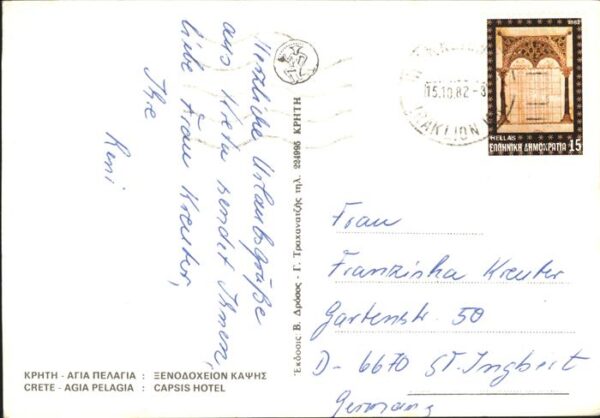 Herzliche Urlaubsgrüße
aus Kreta sendet Ihnen,
liebe Frau Kreuter,
Ihre
Reni
Εκδοσις Β. Δρόσος - Γ. Τραχανατζής τηλ. 224995 ΚΡΗΤΗ
15.10.82-8
HELLAS
ΕΛΛΗΝΙΚΗ ΔΗΜΟΚΡΑΤΙΑ 15
Frau
Franziska Kreuter
Gartenstr. 50
D-6670 St. Ingbert
Germany
ΚΡΗΤΗ - ΑΓΙΑ ΠΕΛΑΓΙΑ : ΞΕΝΟΔΟΧΕΙΟΝ ΚΑΨΗΣ
CRETE - AGIA PELAGIA : CAPSIS HOTEL